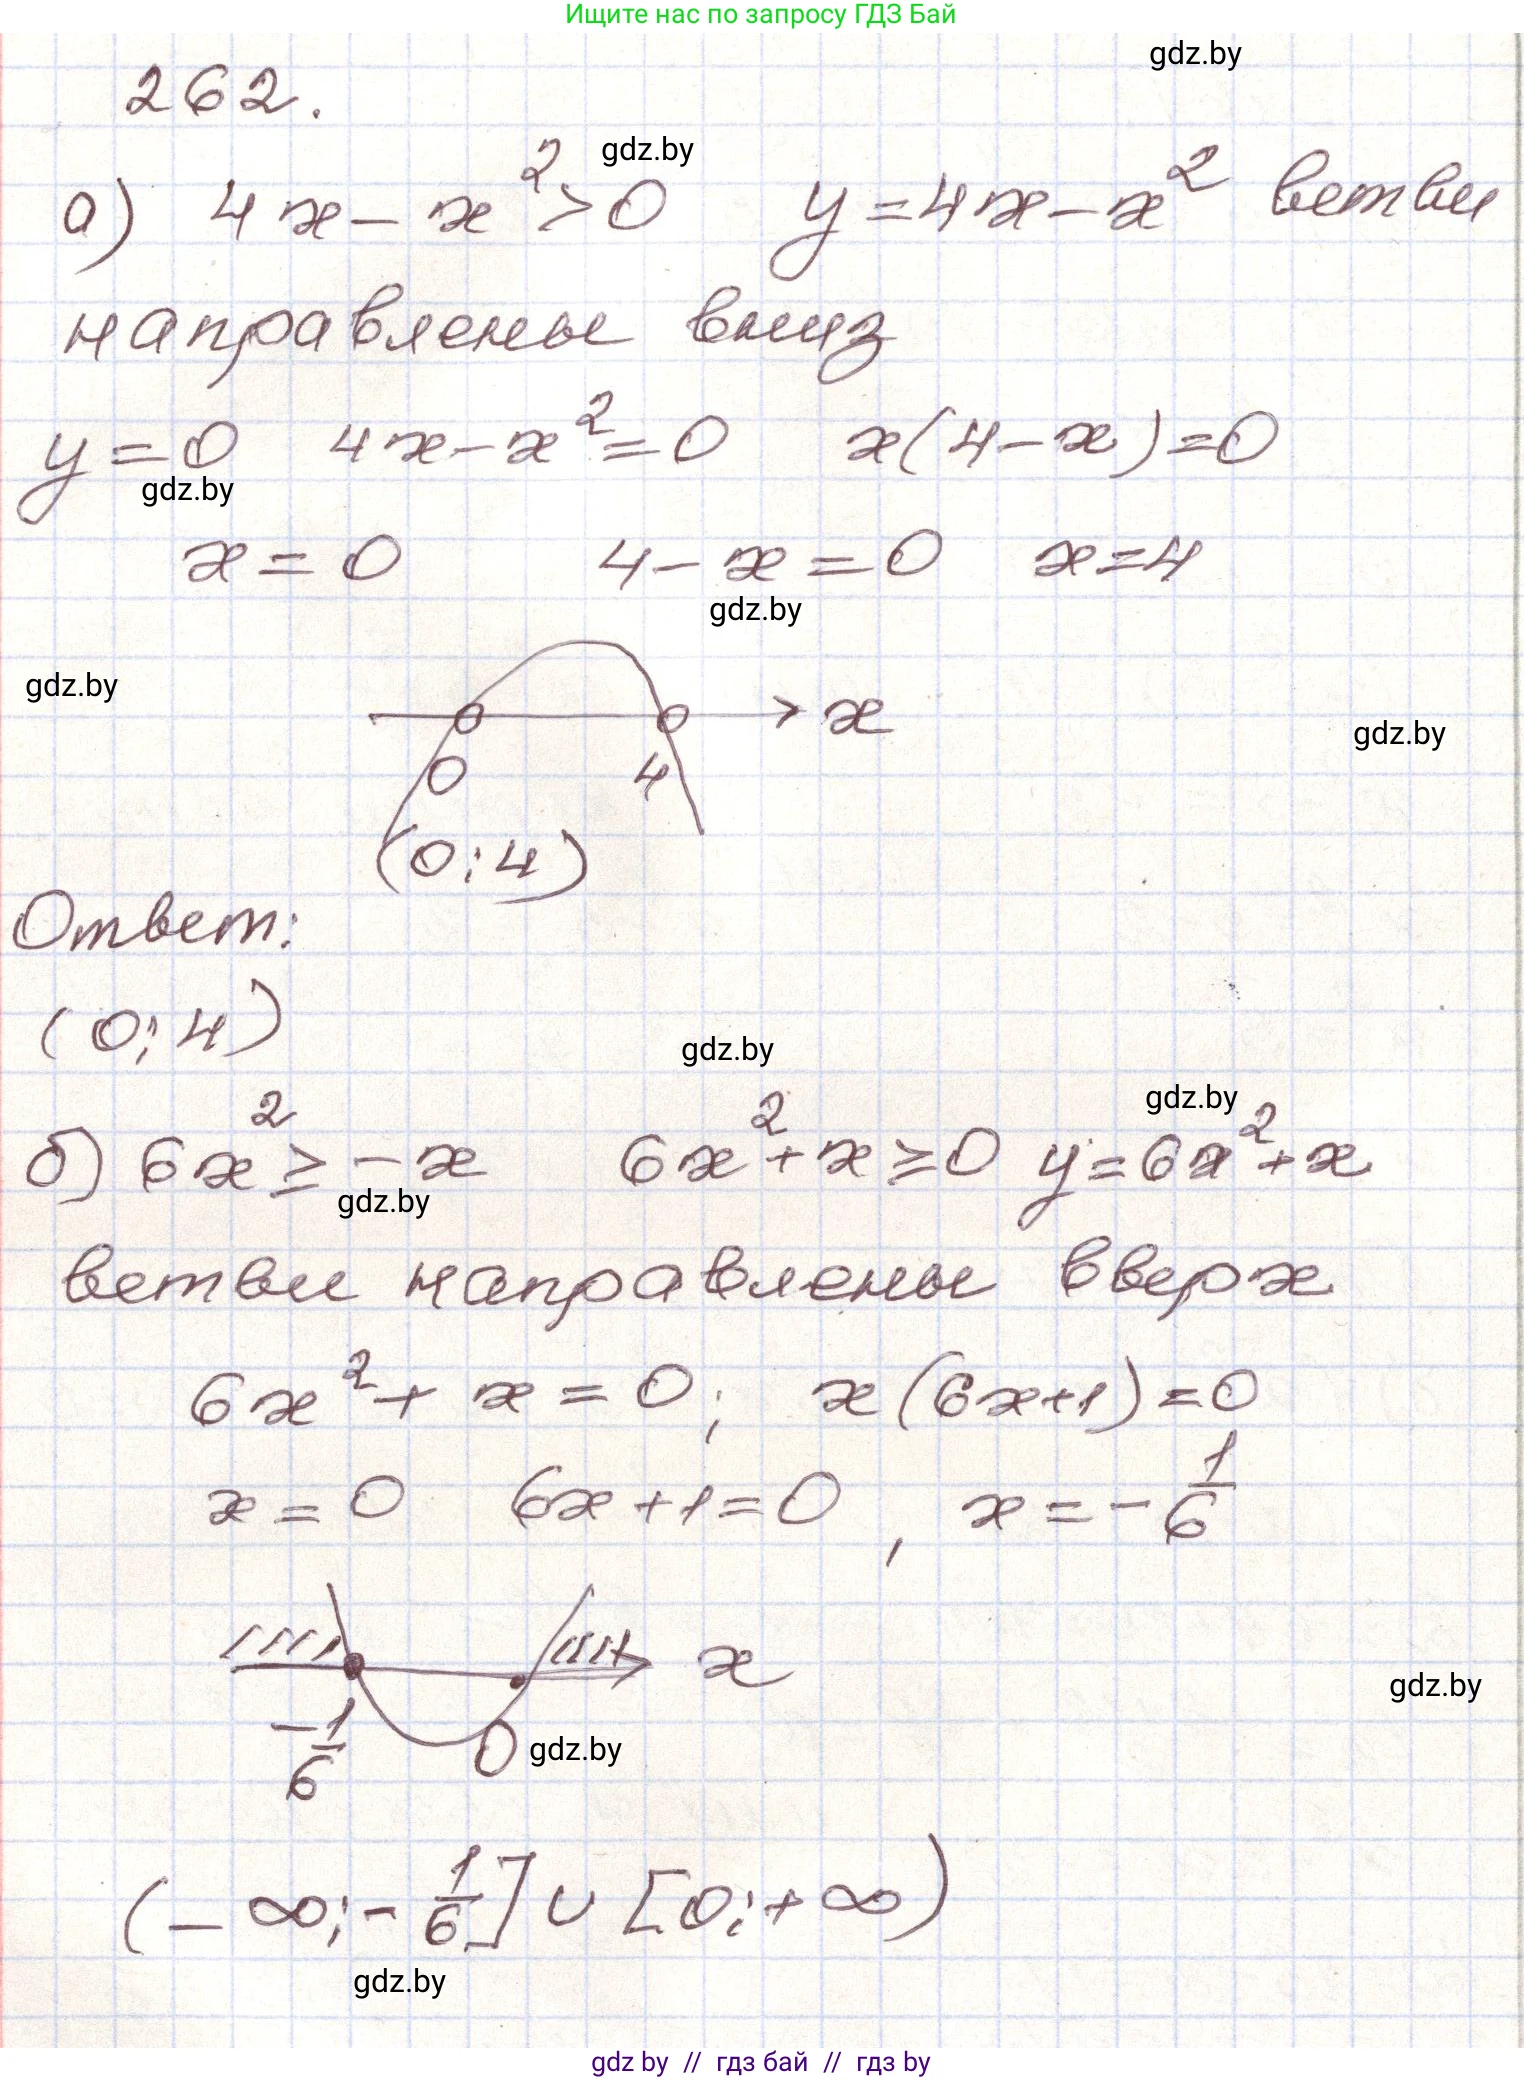 Ищите нас по запросу ГДЗ Бай
gdz.by
262.
gdz.by
а) 4x - x² > 0 y = 4x - x² ветви
направлены вниз
y = 0 4x - x² = 0 x(4 - x) = 0
gdz.by
x = 0 4 - x = 0 x = 4
gdz.by
gdz.by
x
gdz.by
0 4
(0; 4)
Ответ:
(0; 4)
gdz.by
gdz.by
б) 6x² ≥ -x 6x² + x ≥ 0 y = 6x² + x
gdz.by
ветви направлены вверх
6x² + x = 0; x(6x+1) = 0
x = 0 6x + 1 = 0, x = -1/6
x
gdz.by
-1/6 0
gdz.by
(-∞; -1/6] ∪ [0; +∞)
gdz.by
gdz by // гдз бай // гдз by